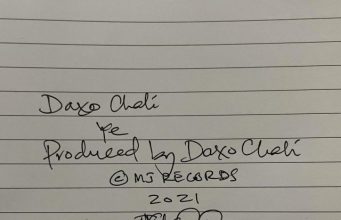 Daxo Chali
Ye
Produced by Daxo Chali
© MJ RECORDS
2021